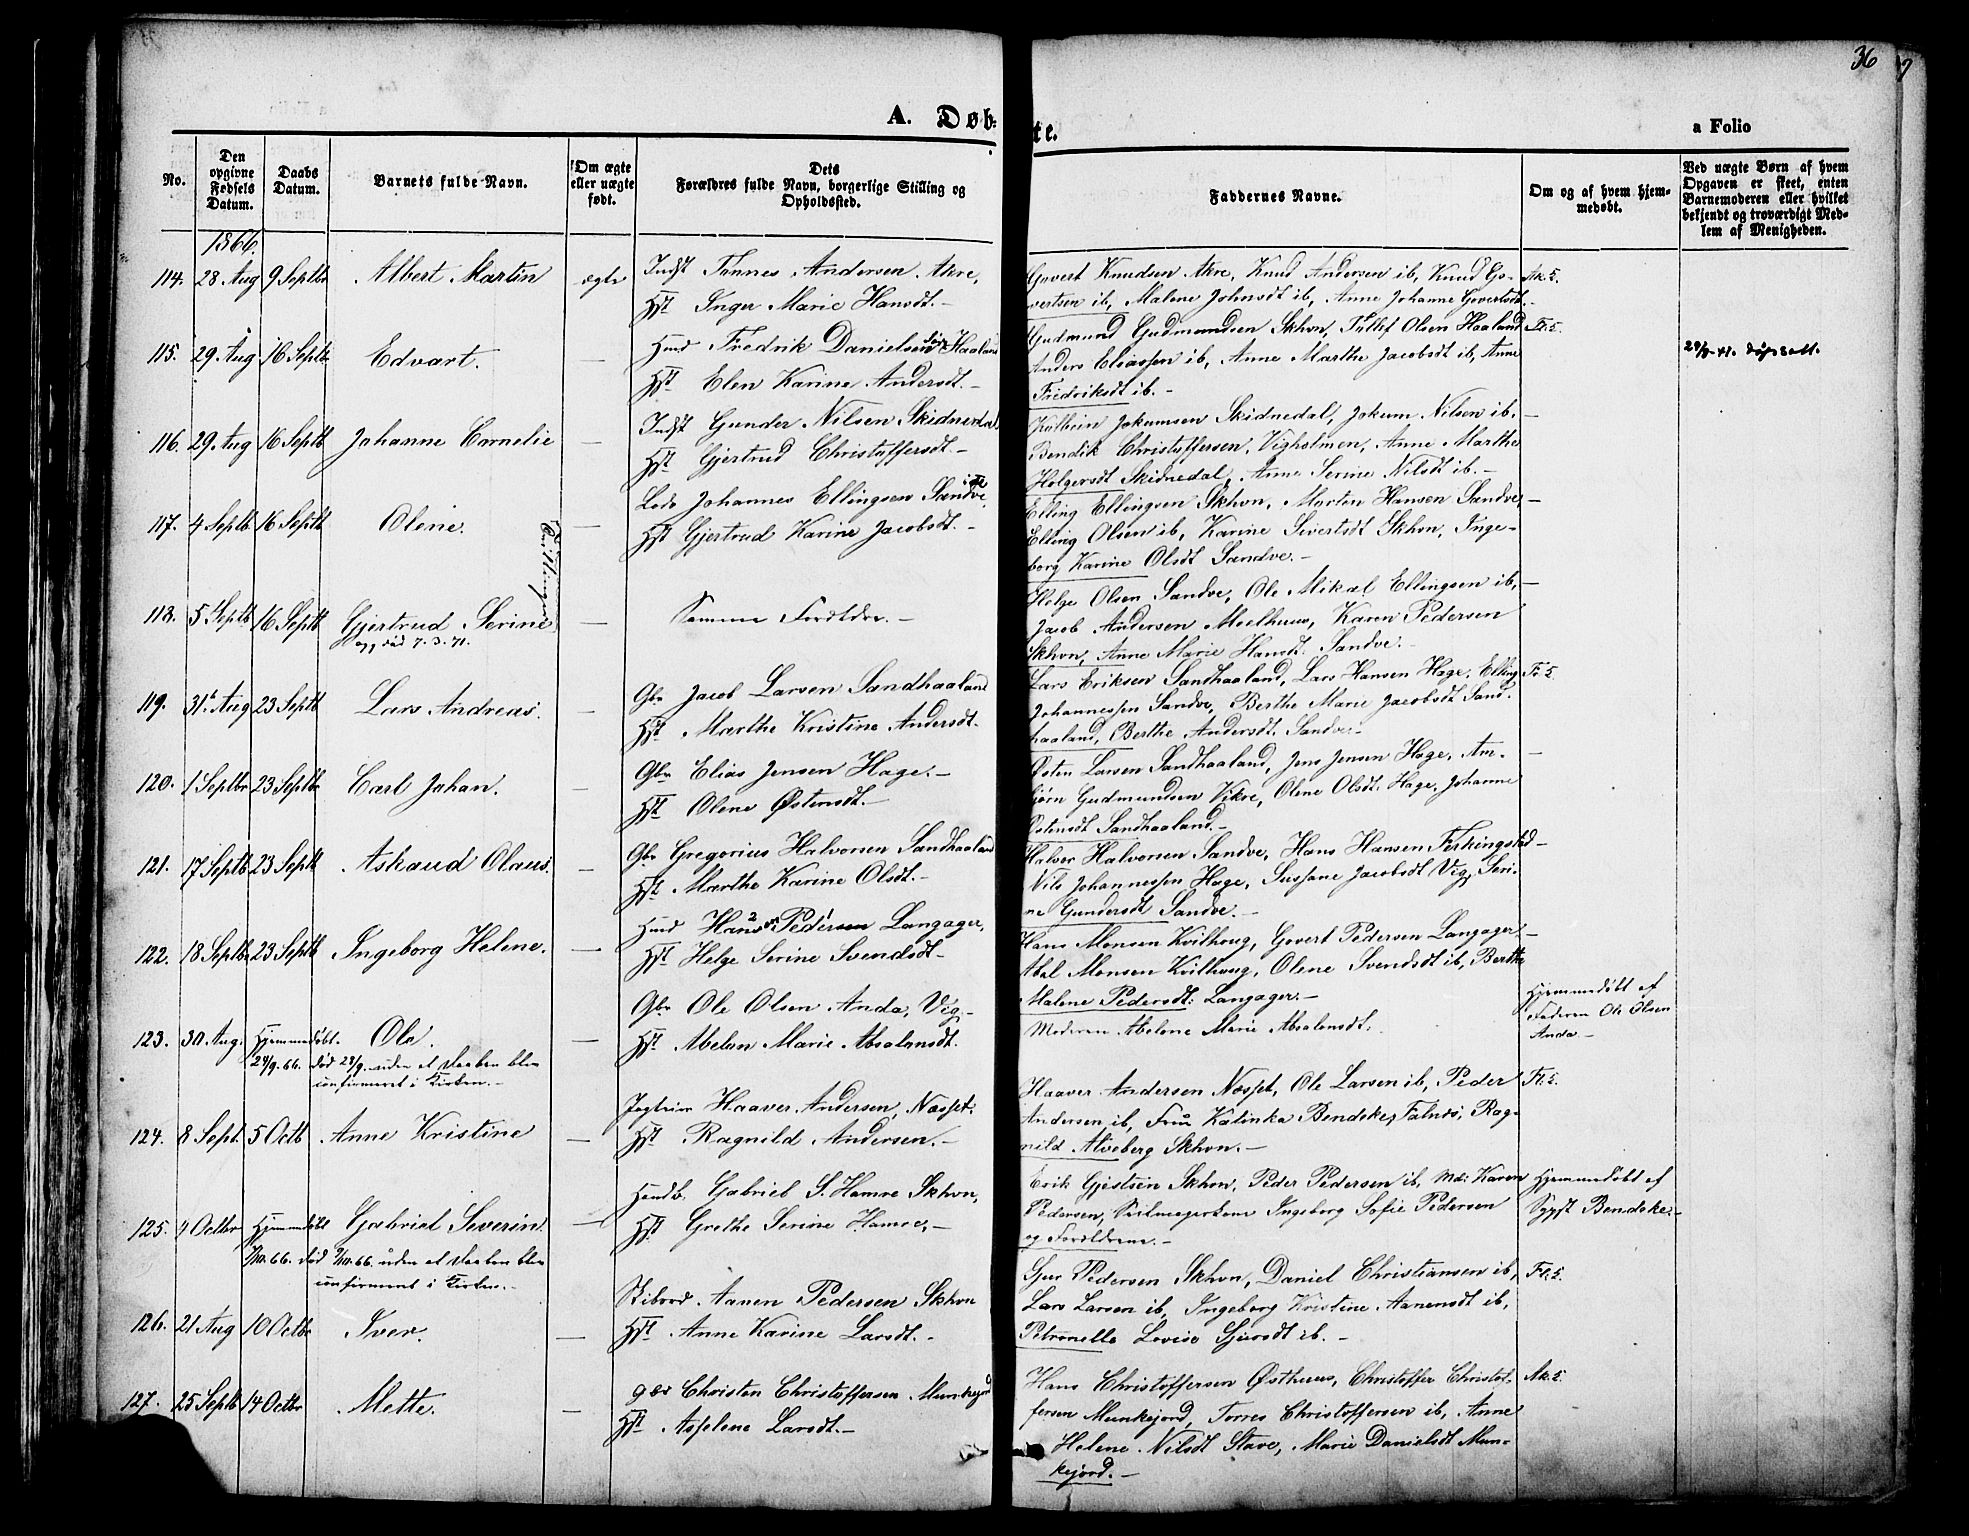 36
A. Døb-
te.
a Folio
No.
Den opgivne Fødsels Datum.
Daabs Datum.
Barnets fulde Navn.
Om ægte eller uægte født.
Dets Forældres fulde Navn, borgerlige Stilling og Opholdssted.
Faddernes Navne.
Om og af hvem hjemmedøbt.
Ved uægte Børn af hvem Opgaven er skeet, enten Barnemoderen eller hvilket bekjendt og troværdigt Medlem af Menigheden.
1866.
114. 28 Aug 9 Septbr Albert Martin ægte Indst Tønnes Andersen Akre,
Hst Inger Marie Hansdt. -
Govert Knudsen Akre, Knud Andersen ib, Knud Go-
vertsen ib, Malene Johnsdt ib, Anne Johanne Govertsdt. -
115. 29 Aug 16 Septbr Edvart. - Huusd Fredrik Danielsen Haaland
Hst Elen Karine Andersdt. -
Gudmund Gudmundsen Skhvn, Tollef Olsen Haaland
Anders Eliassen ib, Anne Marthe Jacobsdt ib, Anne
Fredriksdt ib. -
116. 29 Aug 16 Septb Johanne Cornelie - Indst Gunder Nilsen Skidnedal
Hst Gjertrud Christoffersdt. -
Kolbein Jokumsen Skidnedal, Jokum Nilsen ib. -
Bendik Christoffersen, Vigholmen, Anne Marthe
Holgersdt Skidnedal, Anne Serine Nilsdt ib. -
117. 4 Septb 16 Septb Olene. - Lods Johannes Ellingsen Sandve,
Hst Gjertrud Karine Jacobsdt. -
Elling Ellingsen Skhvn, Morten Hansen Sandve, -
Elling Olsen ib, Karine Sivertsdt Skhvn, Inge-
borg Karine Olsdt Sandve. -
Tvillinger
118. 5 Septb 16 Septb Gjertrud Serine - Samme Forældre. -
død 7.3.71.
Helge Olsen Sandve, Ole Mikal Ellingsen ib, -
Jacob Andersen Moelhuus, Karen Pedersen
Skhvn, Anne Marie Hansdt. Sandve. -
119. 31 Aug 23 Septb Lars Andreas. - Gbr Jacob Larsen Sandhaaland
Hst Marthe Kristine Andersdt. -
Lars Eriksen Sandhaaland, Lars Hansen Hage, Elling
Johannessen Sandve, Berthe Marie Jacobsdt Sand-
haaland, Berthe Andersdt. Sandve. -
120. 1 Septbr 23 Septbr Carl Johan. - Gbr Elias Jensen Hage. -
Hst Olene Østensdt. -
Østen Larsen Sandhaaland, Jens Jensen Hage, Am- -
bjørn Gudmundsen Vikre, Olene Olsdt. Hage, Johanne
Østensdt Sandhaaland. -
121. 17 Septb 23 Septb Askaud Olaus. - Gbr Gregorius Halvorsen Sandhaaland
Hst Marthe Karine Olsdt. -
Halvor Halvorsen Sandve, Hans Hansen Ferkingstad -
Nils Johannessen Hage, Sussane Jacobsdt Vig, Seri-
ne Gundersdt Sandve. -
122. 18 Septbr 23 Septb Ingeborg Helene. - Huusd Hans Pedersen Langager,
Hst Helge Serine Svendsdt -
Hans Monsen Kvilhoug, Govert Pedersen Langager, -
Abel Monsen Kvilhoug, Olene Svendsdt ib, Berthe
Malene Pedersdt: Langager. -
123. 30 Aug. Hjemmedøbt. Ole. - Gbr Ole Olsen Anda, Vig. -
28/9.66. død 28/9. uden at daaben blev
confirmeret i Kirken. -
Hst Abelen Marie Absalonsdt.
Moderen Abelene Marie Absalonsdt.
Hjemmedøbt af
Faderen Ole Olsen
Anda -
124. 8 Sept. 5 Octb Anne Kristine - Haaver Andersen, Næsset.
Hst Ragnild Andersen. -
Haaver Andersen Næsset, Ole Larsen ib, Peder
Andersen ib, Frue Katinka Bendeke, Falnæs, Rag-
nild Alveberg Skhvn. -
125. 4 Octbr Hjemmedøbt Gabriel Severin - Handlb. Gabriel S. Hamre Skhvn,
66. død 66. uden at daaben blev
confirmeret i Kirken. -
Hst. Grethe Serine Hamre, -
Erik Gjestsen Skhvn, Peder Pedersen ib, Karen
Pedersen, Ingeborg Sofie Pedersen
og Forældrene. -
Hjemmedøbt af
Bendeke. -
126. 21 Aug 10 Octbr Iver. - Skibsrd Aanen Pedersen Skhvn
Hst. Anne Karine Larsdt. -
Sjur Pedersen Skhvn, Daniel Christiansen ib,
Lars Larsen ib, Ingeborg Kristine Aanensdt ib,
Petronelle Lovise Sjursdt ib. -
127. 25 Septb 14 Octbr Mette. - Christen Christoffersen Munkejord
Hst. Asselene Larsdt. -
Hans Christoffersen Østhuus, Christoffer Christof-
fersen Munkejord, Torres Christoffersen ib, Anne
Helene Nilsdt Stave, Marie Danielsdt Mun-
kejord. -